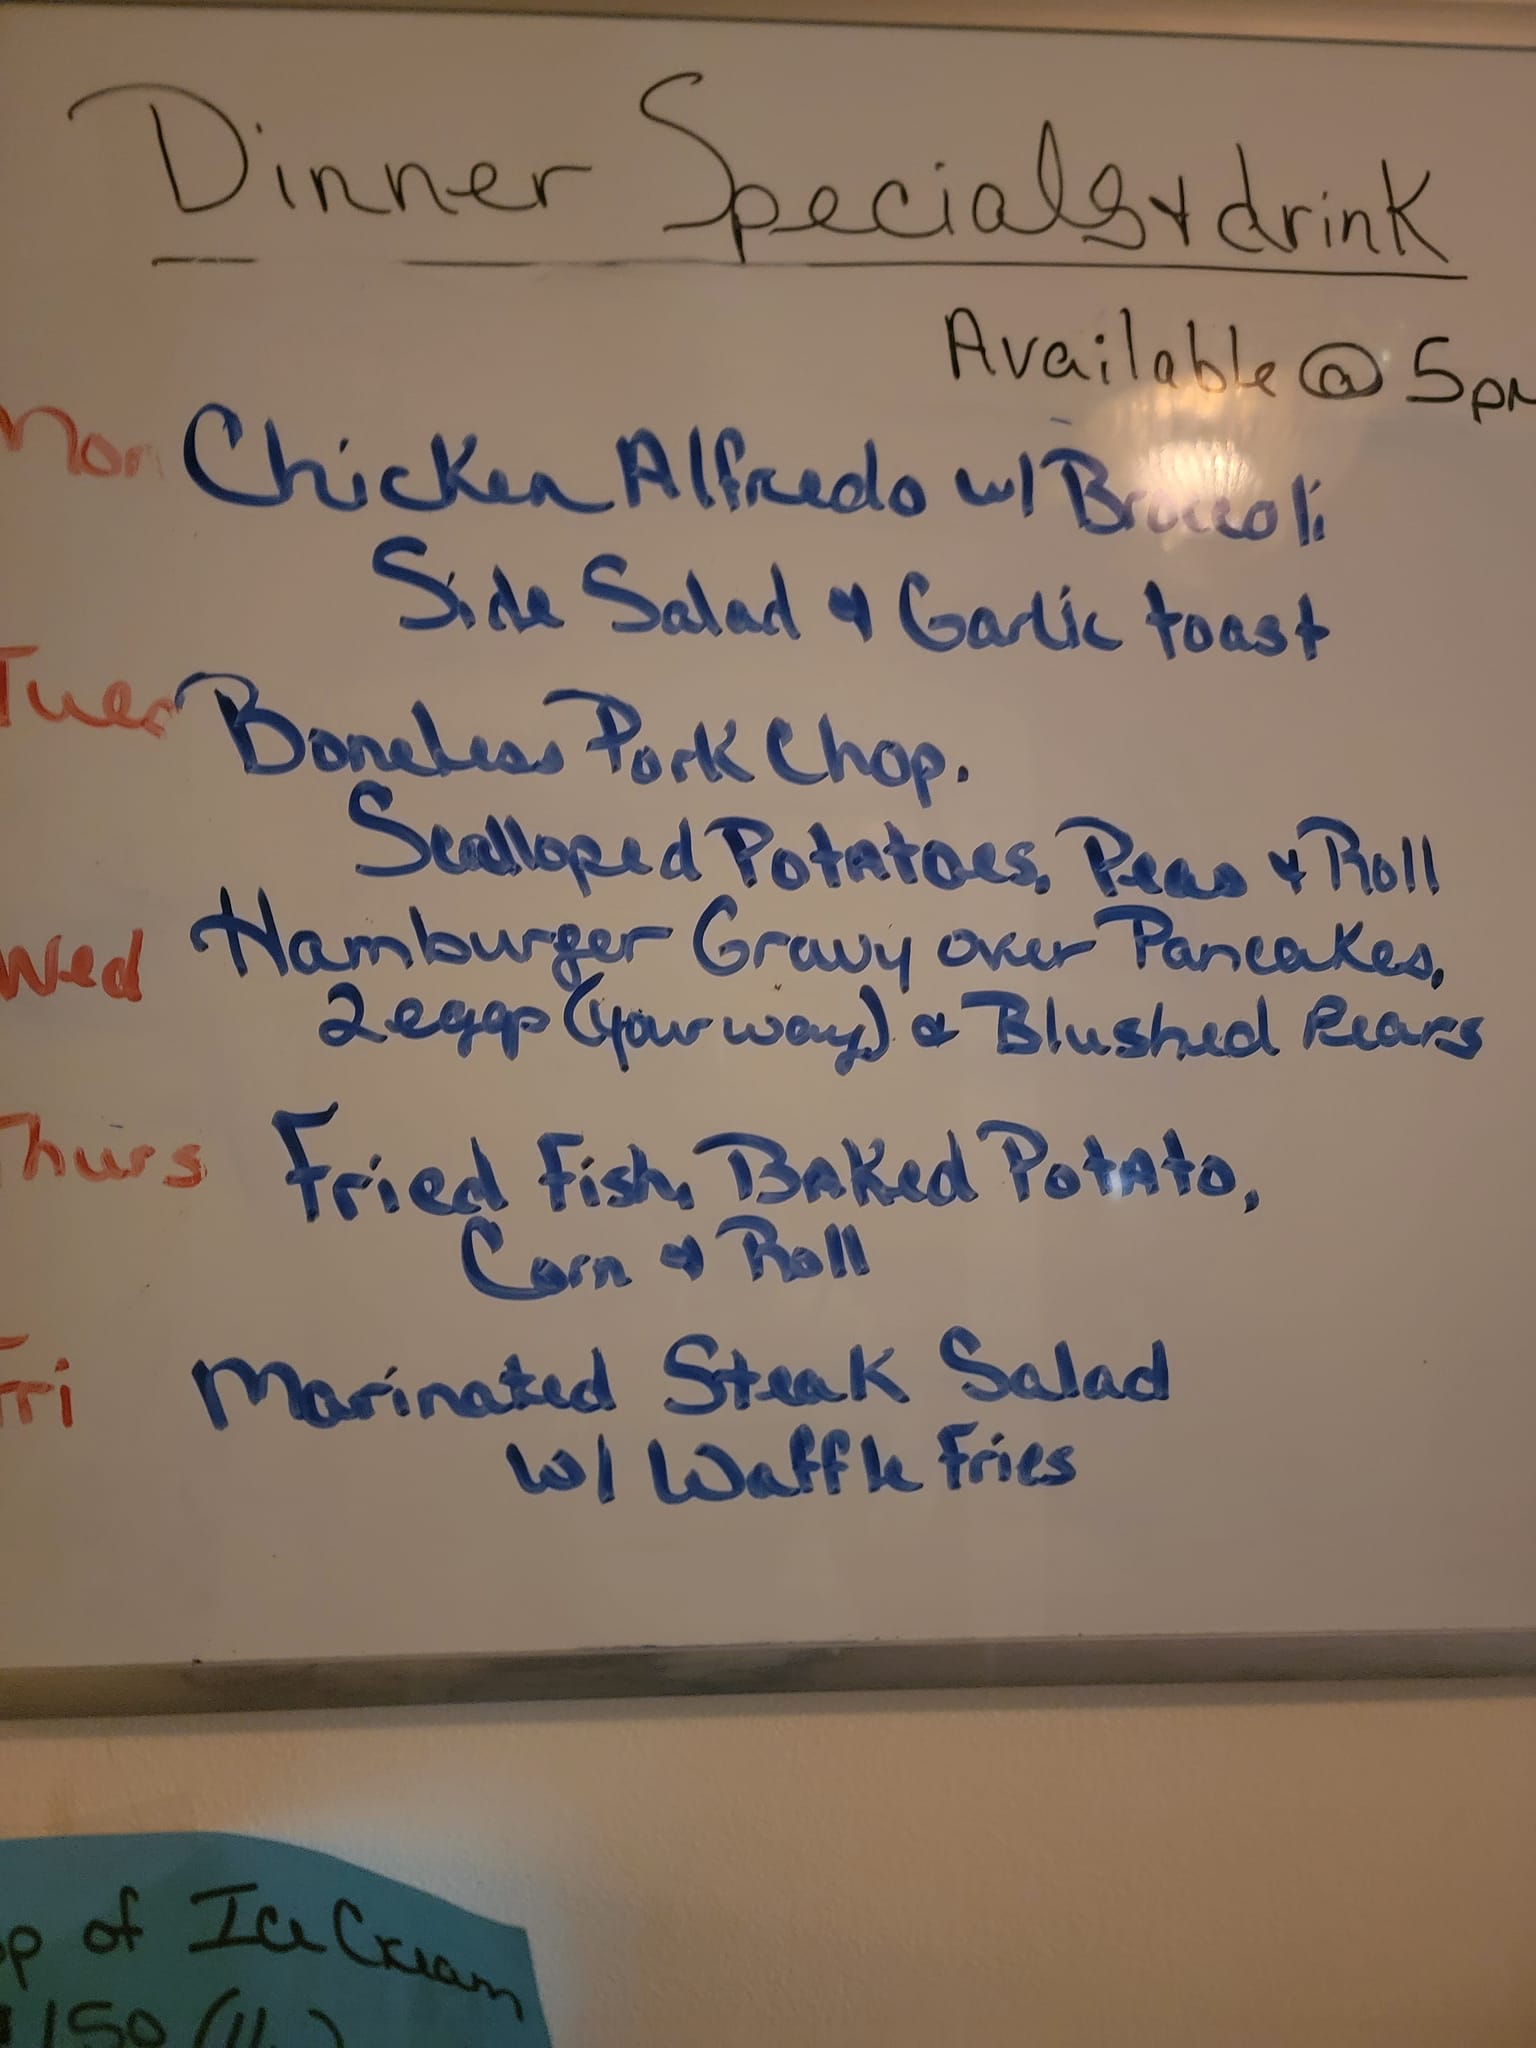 Dinner Specials & drink
Available @ 5pm
Mon Chicken Alfredo w/ Broccoli
Side Salad & Garlic toast
Tues Boneless Pork Chop.
Scalloped Potatoes, Peas & Roll
Wed Hamburger Gravy over Pancakes,
2 eggs (your way) & Blushed Pears
Thurs Fried Fish, Baked Potato,
Corn & Roll
Fri Marinated Steak Salad
w/ Waffle Fries
of Ice Cream